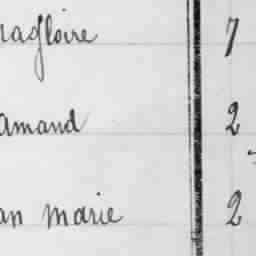 ragloire 7
amand 2
an marie 2